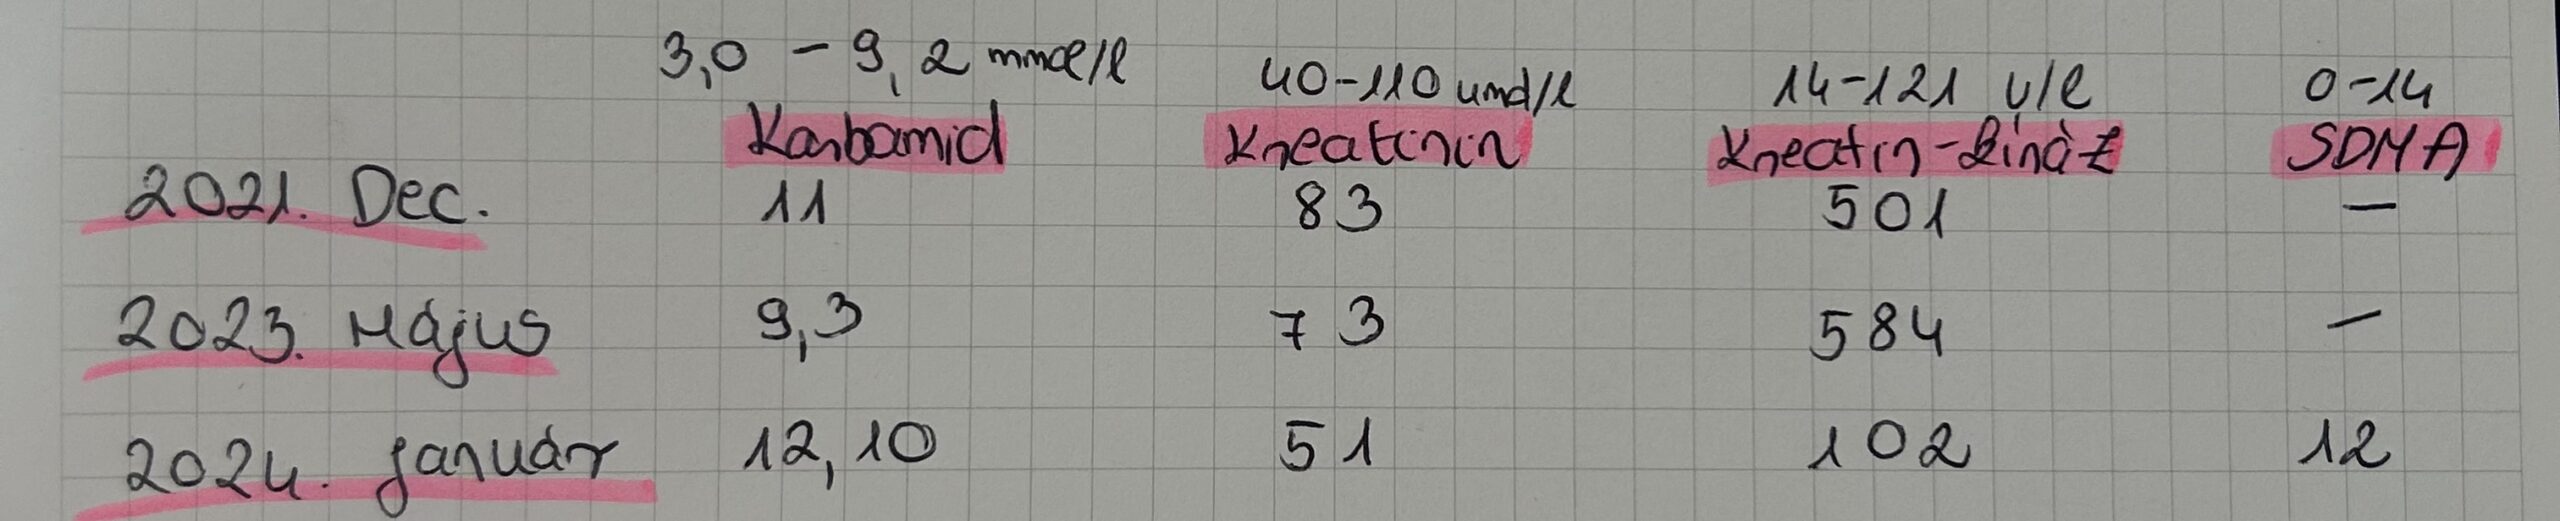 3,0 - 9,2 mmol/l 40-110 umol/l 14-121 U/l 0-14
Karbamid Kreatinin Kreatin-kináz SDMA
2021. Dec. 11 83 501 -
2023. Május 9,3 73 584 -
2024. január 12,10 51 102 12